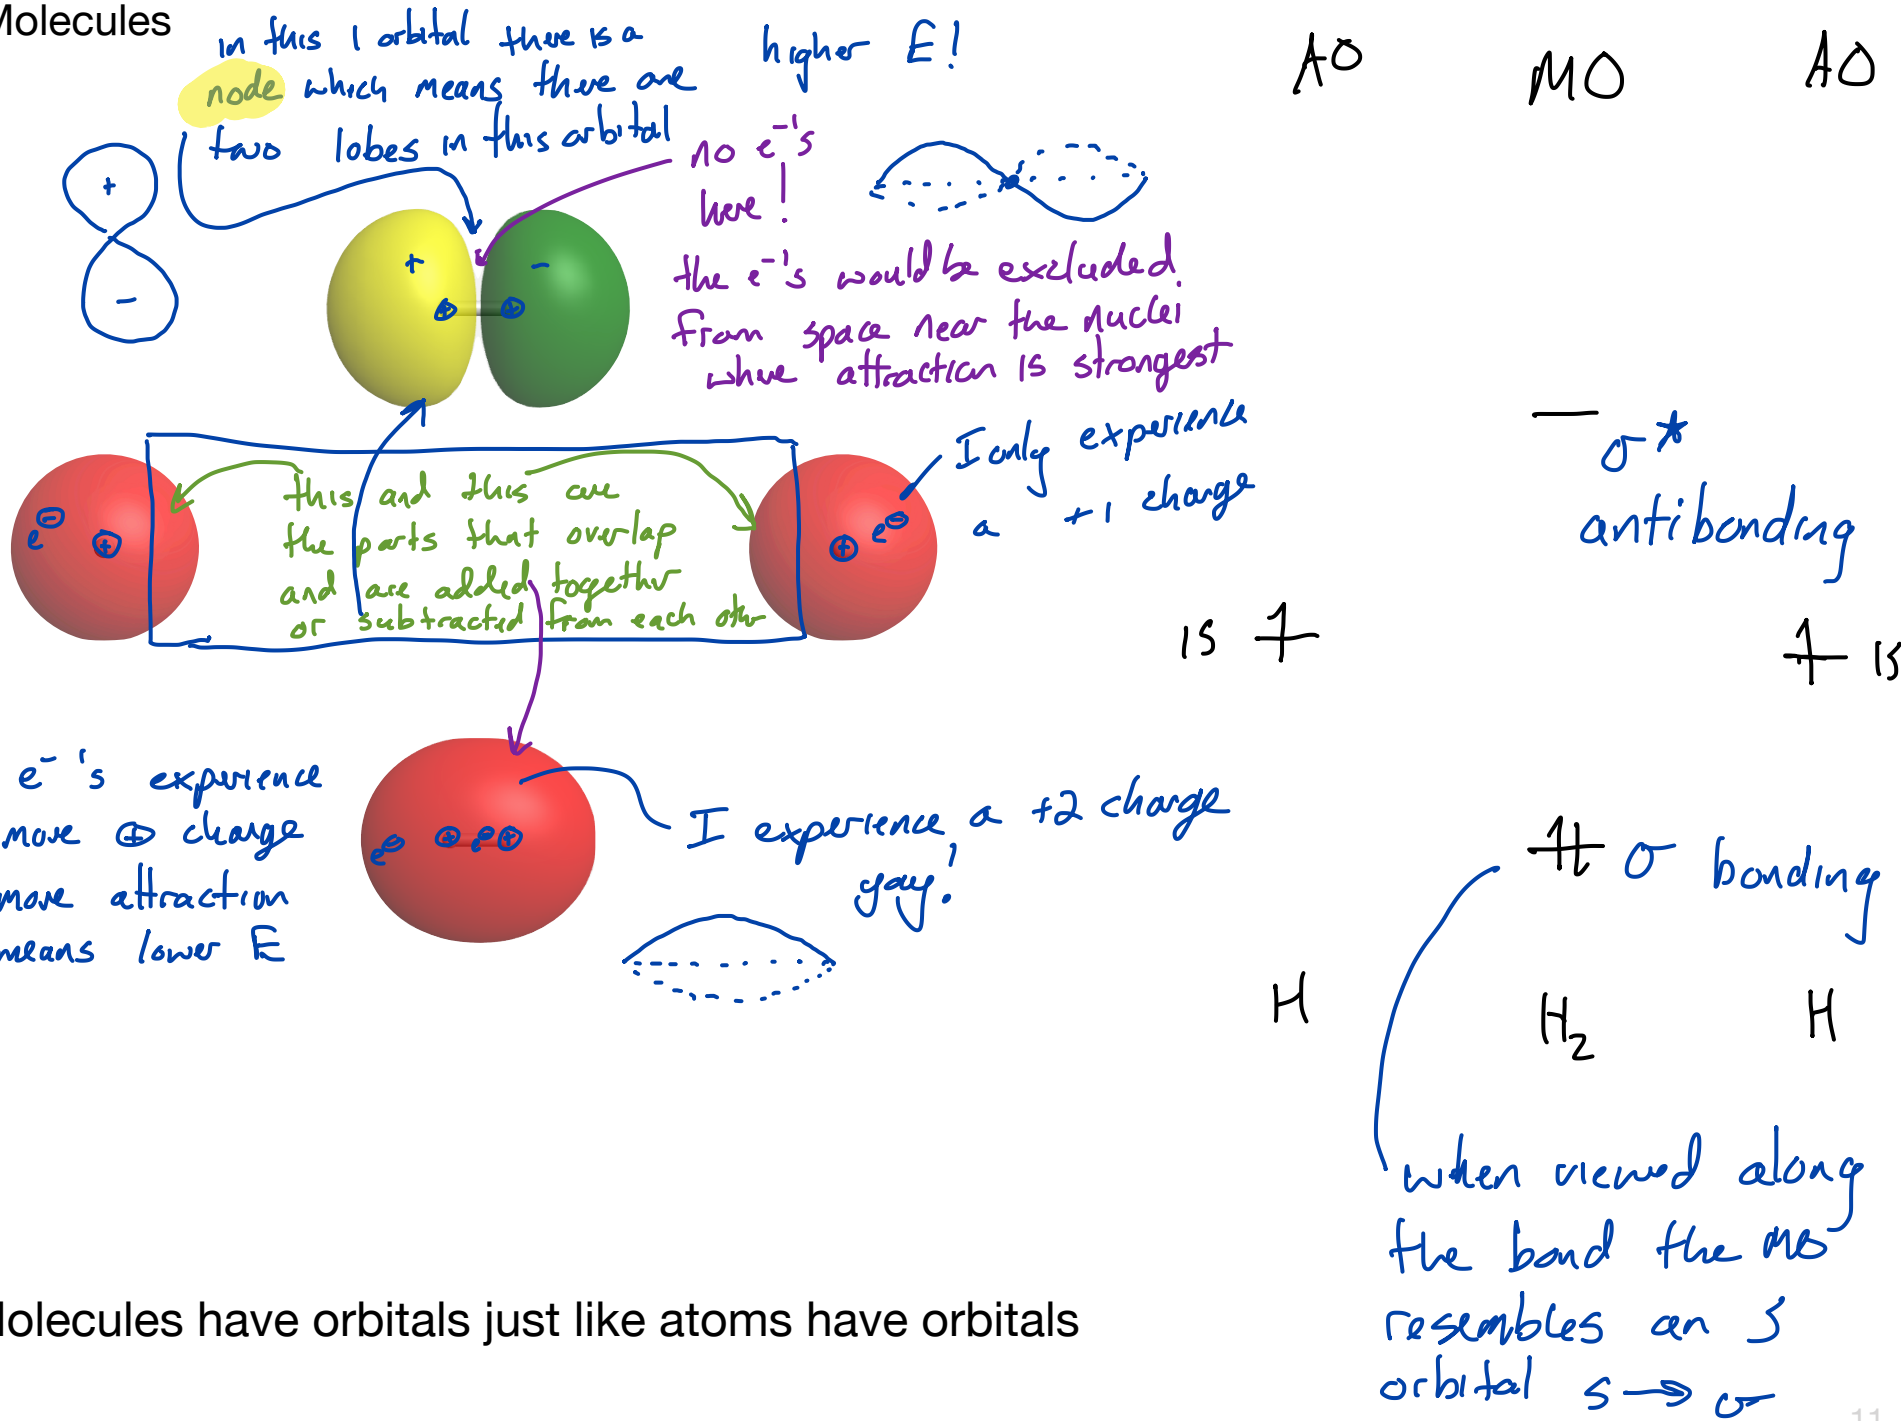 Molecules
in this 1 orbital there is a
node which means there are
two lobes in this orbital
higher E!
no e⁻'s
here!
the e⁻'s would be excluded
from space near the nuclei
where attraction is strongest
+
−
+
−
+
+
I only experience
a +1 charge
this and this are
the parts that overlap
and are added together
or subtracted from each other
e⊖
+
+
e⊖
e⁻'s experience
more ⊕ charge
more attraction
means lower E
e⊖ ⊕ e⊖ ⊕
I experience a +2 charge
yay!
AO
MO
AO
σ*
antibonding
1s
1s
σ bonding
H
H₂
H
when viewed along
the bond the MO
resembles an s
orbital s → σ
Molecules have orbitals just like atoms have orbitals
11